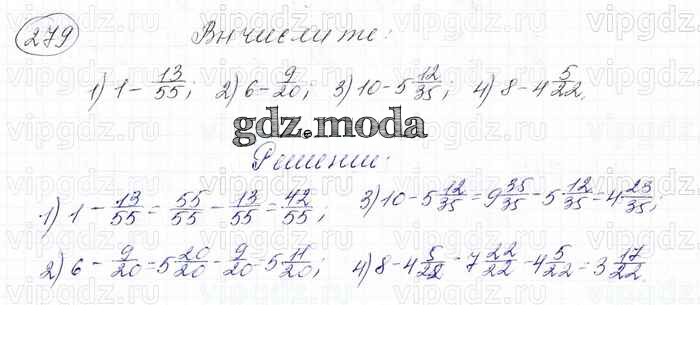 279 Вычислите:
1) 1 - 13/55; 2) 6 - 9/20; 3) 10 - 5 12/35; 4) 8 - 4 5/22.
gdz.moda
Решение:
1) 1 - 13/55 = 55/55 - 13/55 = 42/55; 3) 10 - 5 12/35 = 9 35/35 - 5 12/35 = 4 23/35;
2) 6 - 9/20 = 5 20/20 - 9/20 = 5 11/20; 4) 8 - 4 5/22 = 7 22/22 - 4 5/22 = 3 17/22.
vipgdz.com